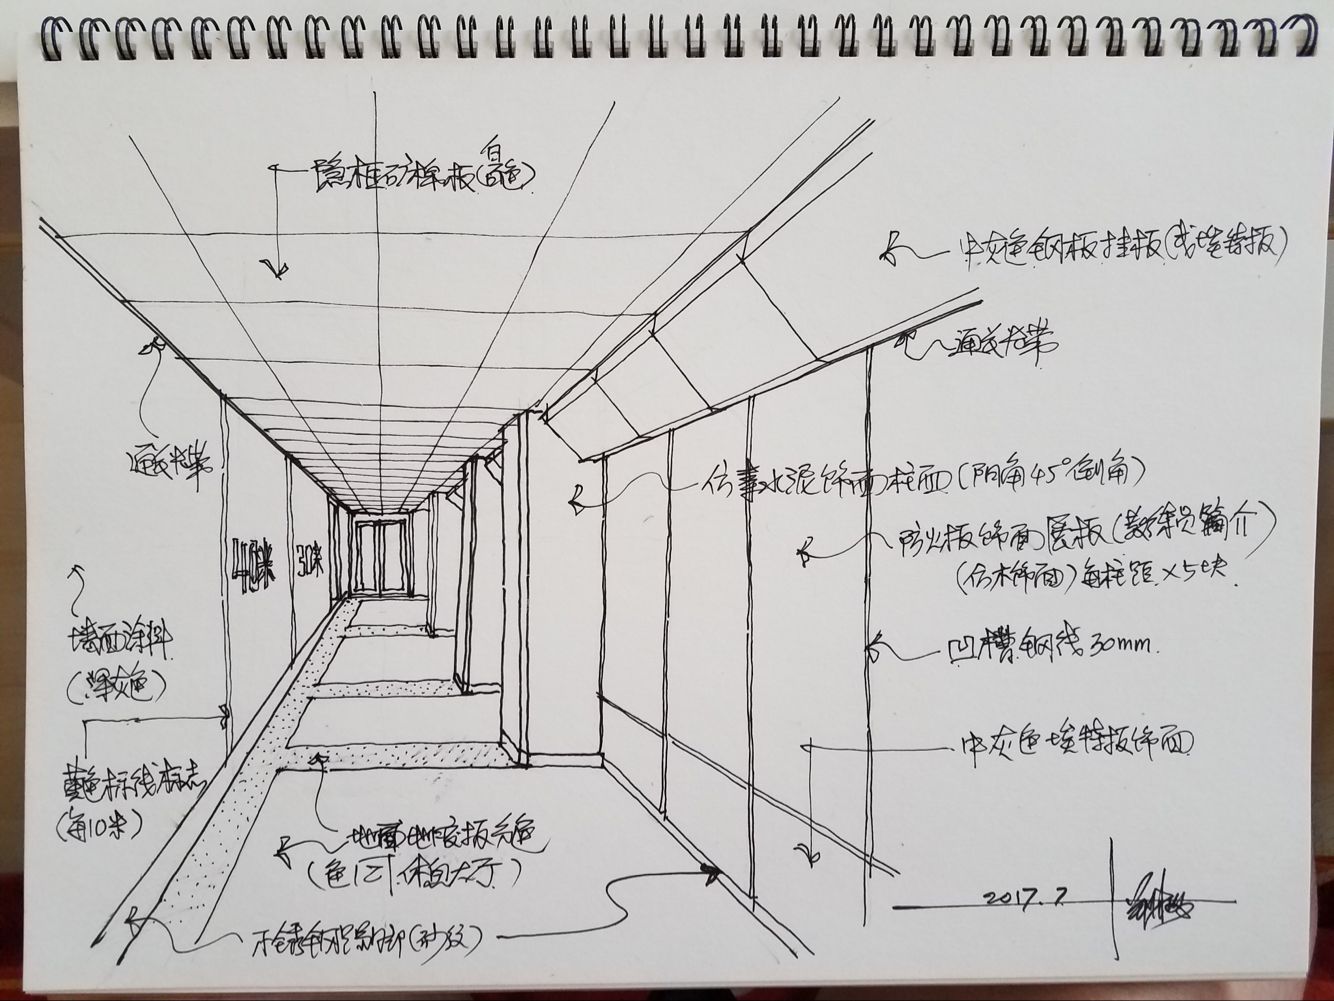 隐框矿棉板(白色)
中灰色钢板挂板(或埃特板)
通长光带
通长光带
仿素水泥饰面柱面(阳角45°倒角)
防火板饰面展板(教练员简介)
(仿木饰面)每柱距×5块
40米
30米
凹槽钢线30mm
墙面涂料
(深灰色)
中灰色埃特板饰面
黄色标线标志
(每10米)
地面地胶板
(色 休息大厅)
不锈钢踢脚(砂纹)
2017.7